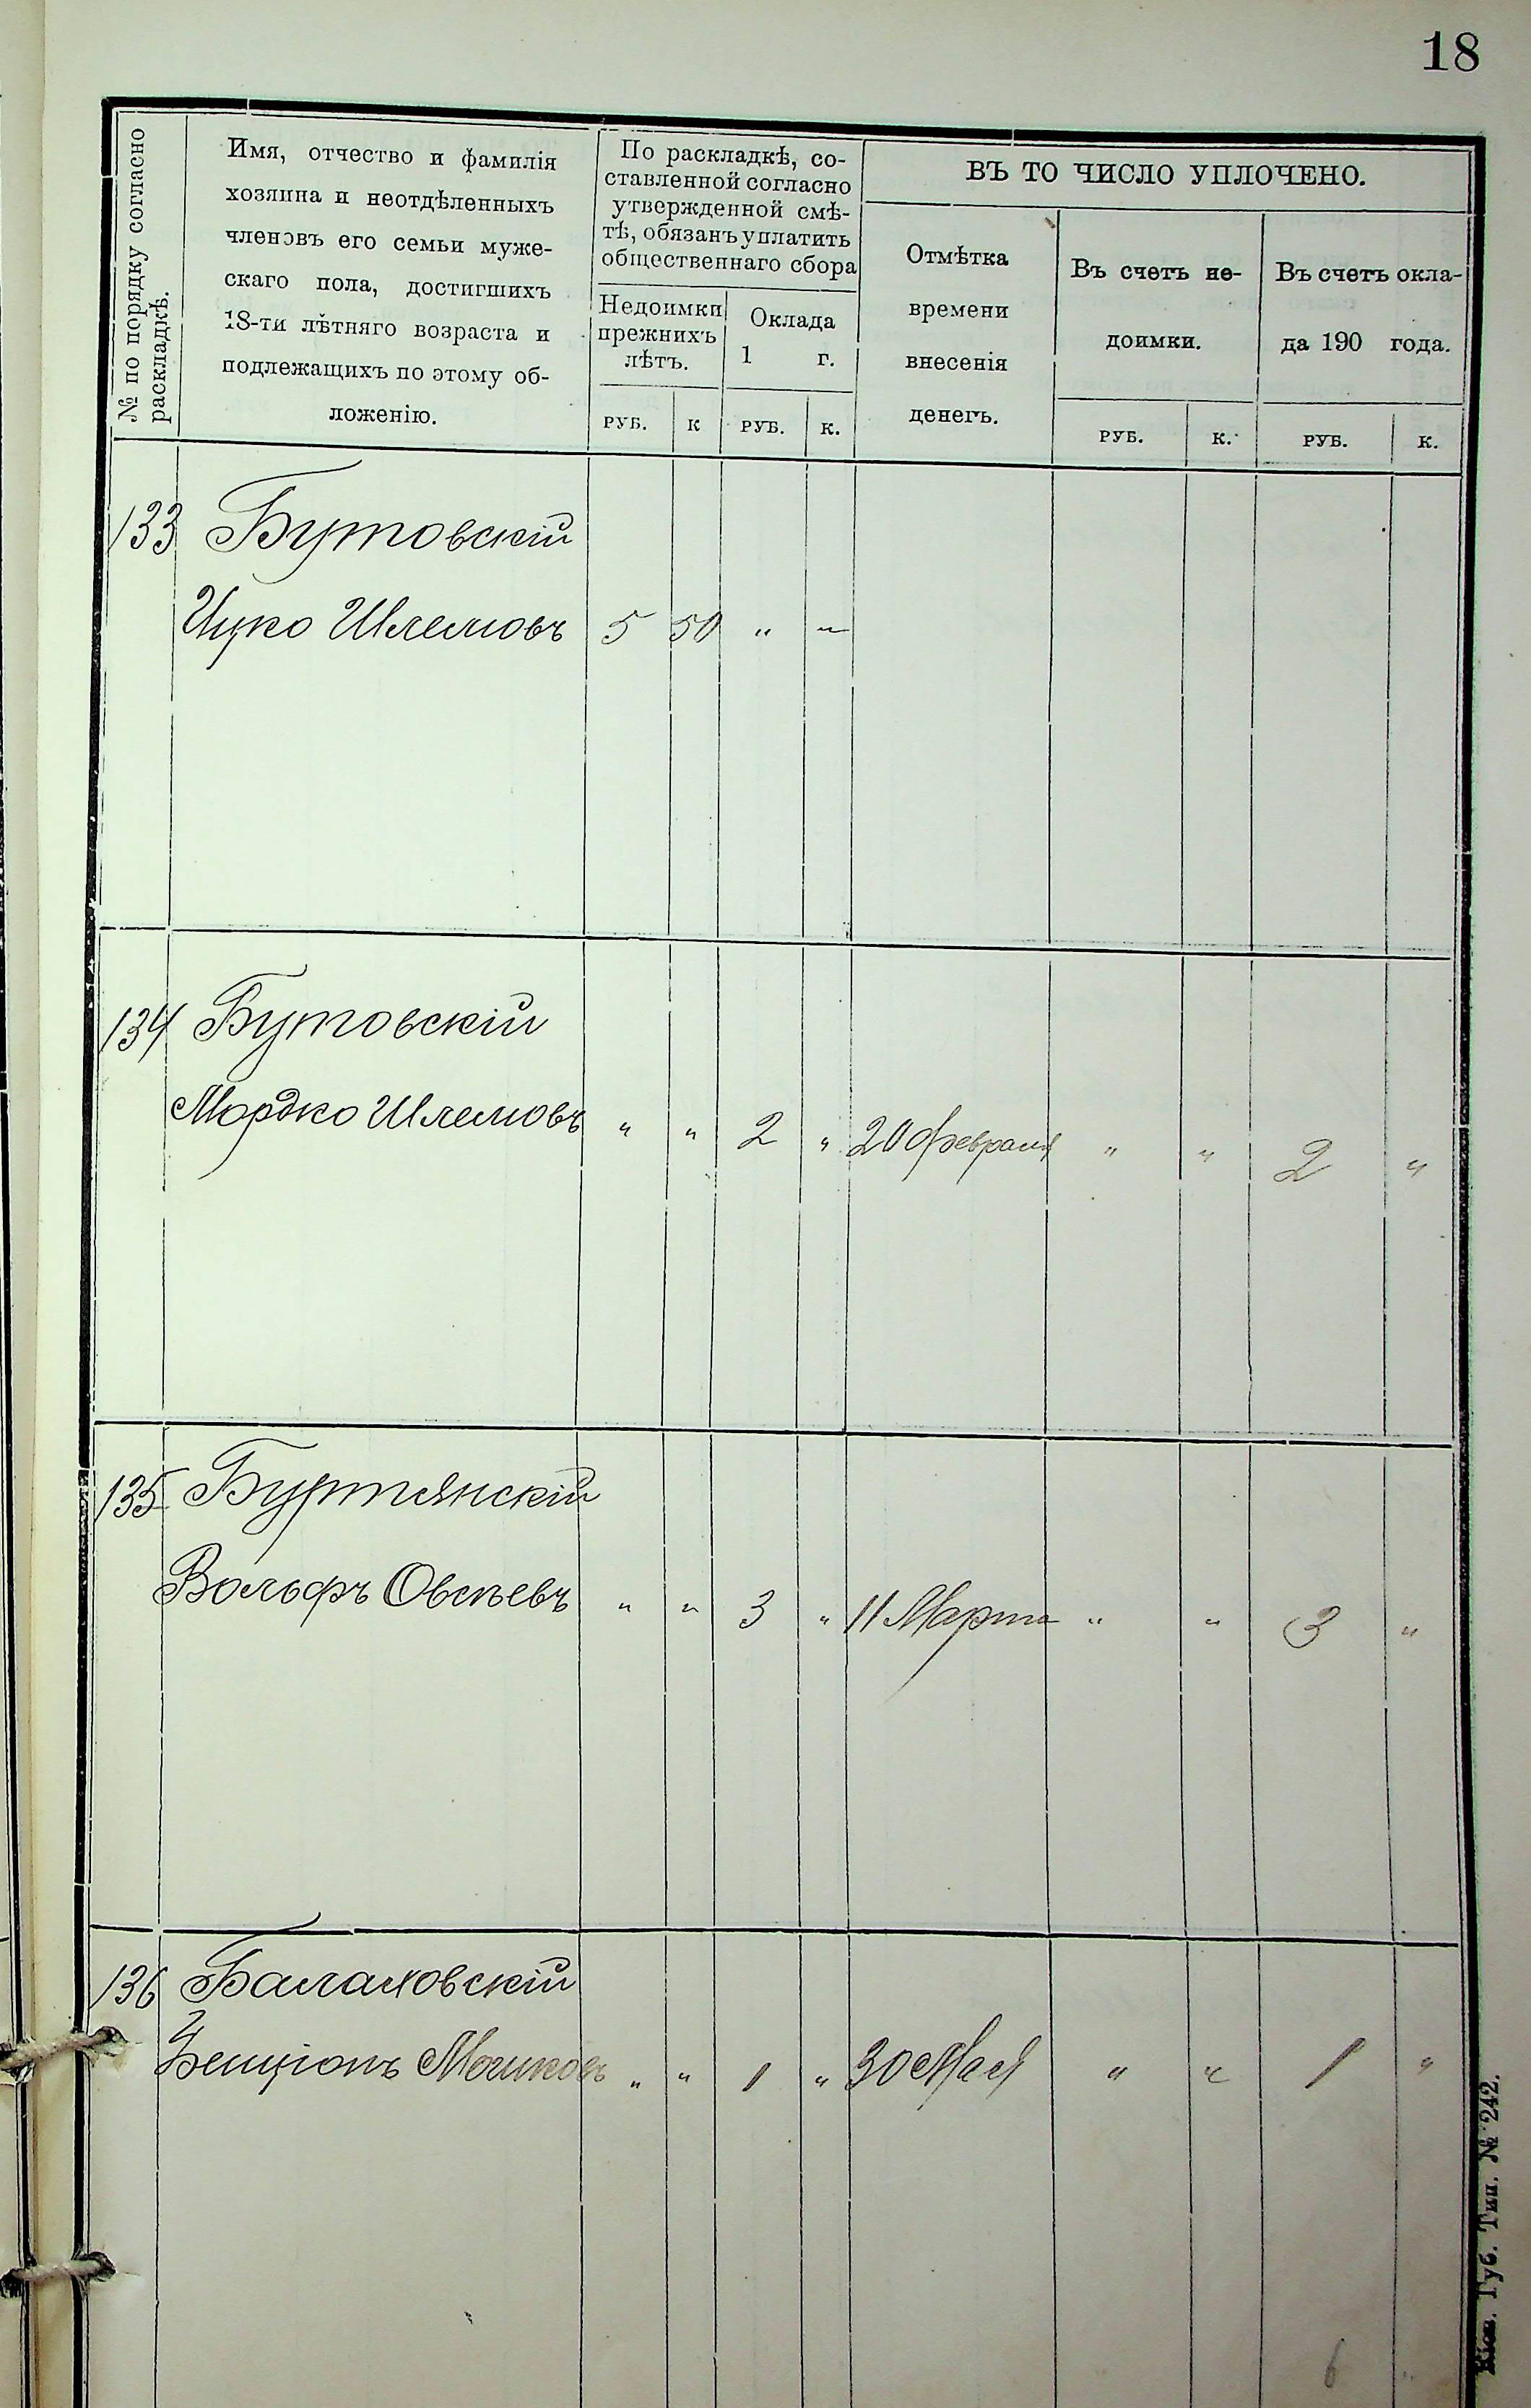 18
№ по порядку согласно
раскладкѣ.
Имя, отчество и фамилія
хозяина и неотдѣленныхъ
членовъ его семьи муже-
скаго пола, достигшихъ
18-ти лѣтняго возраста и
подлежащихъ по этому об-
ложенію.
По раскладкѣ, со-
ставленной согласно
утвержденной смѣ-
тѣ, обязанъ уплатить
общественнаго сбора
Недоимки
прежнихъ
лѣтъ.
Оклада
1 г.
ВЪ ТО ЧИСЛО УПЛОЧЕНО.
Отмѣтка
времени
внесенія
денегъ.
Въ счетъ не-
доимки.
Въ счетъ окла-
да 190 года.
РУБ. К РУБ. К. РУБ. К. РУБ. К.
133 Бутовскій
Ицко Шлемовъ 5 50 " "
134 Бутовскій
Мордко Шлемовъ " " 2 " 20 февраля " " 2 "
135 Буртянскій
Вольфъ Овсѣевъ " " 3 " 11 Марта " " 3 "
136 Балаховскій
Бенціонъ Мошковъ " " 1 " 30 Мая " " 1 "
6 "
Кіев. Губ. Тип. № 242.